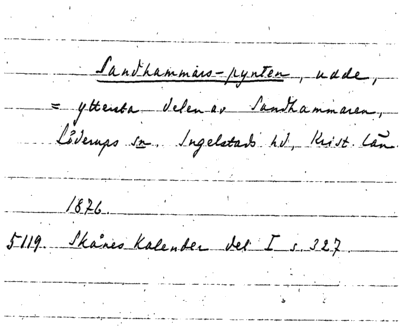 Sandhammars-pynten, udde,
= yttersta delen av Sandhammaren,
Löderups sn. Ingelstads hd, Krist. län.
1876.
5119. Skånes Kalender del I s. 327.